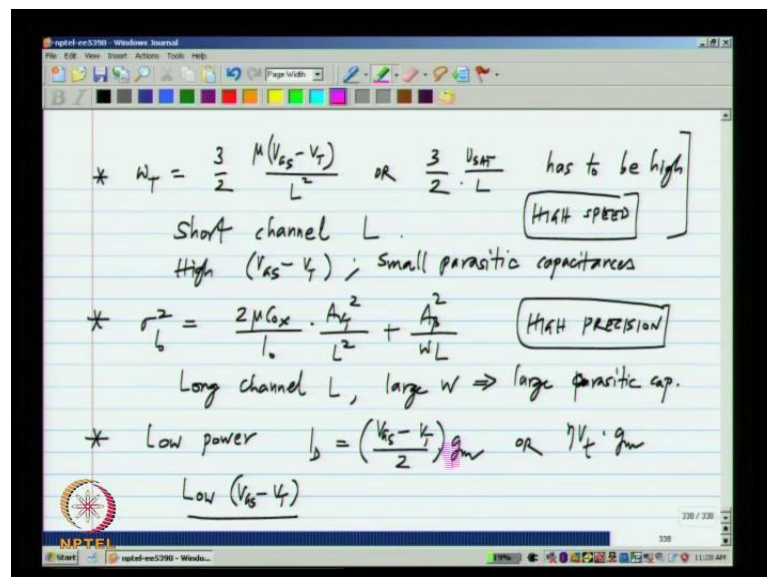 nptel-ee5390 - Windows Journal
File Edit View Insert Actions Tools Help
Page Width
B I
* ω_T = 3/2 μ(V_GS - V_T)/L² OR 3/2 · v_SAT/L has to be high
Short channel L. HIGH SPEED
High (V_GS - V_T) ; Small parasitic capacitances
* σ²_b = 2μCox/I₀ · A_VT²/L² + A_β²/WL HIGH PRECISION
Long channel L, large W ⇒ large parasitic cap.
* Low power I_D = ((V_GS - V_T)/2) g_m OR ηV_t · g_m
Low (V_GS - V_T)
338 / 338
338
NPTEL
Start nptel-ee5390 - Windo... 11:28 AM